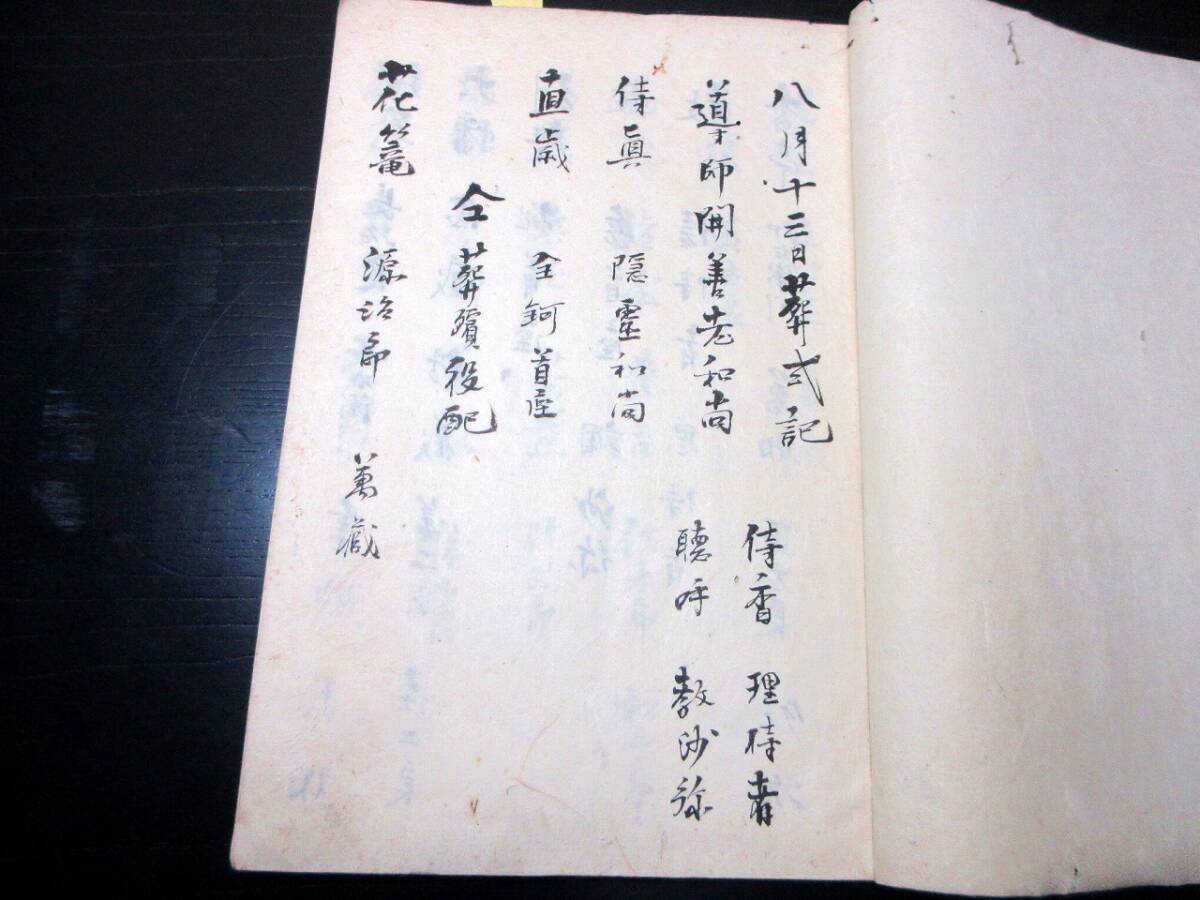 八月十三日葬式記
導師開善老和尚
侍香 理侍者
聴呼 教沙弥
侍眞 隠霊和尚
直歳 全鈳首座
仝葬殯役配
花篭 源治郎 萬蔵